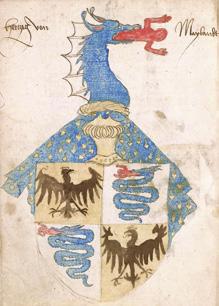 Hertzog von Maylandt